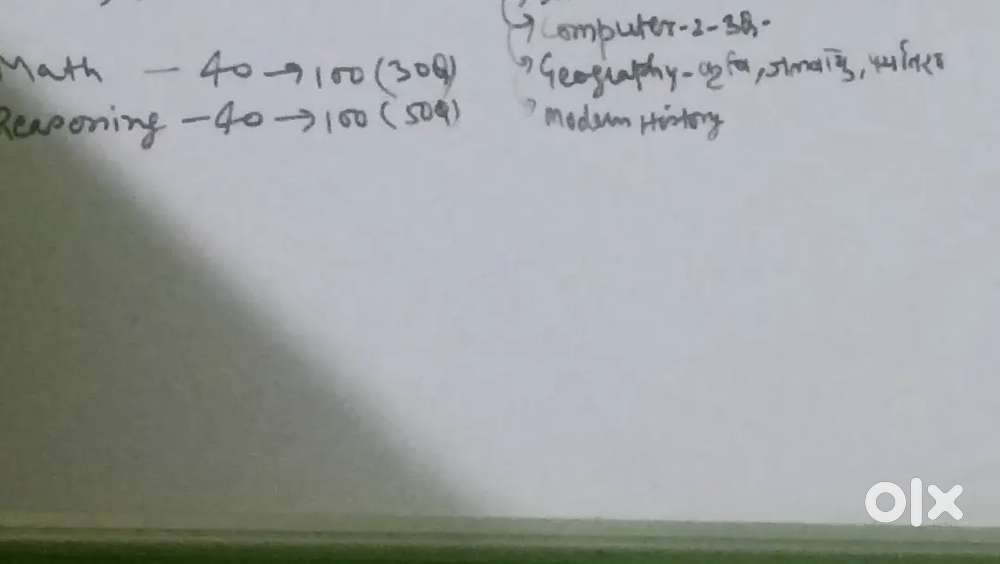 Computer-2-3Q.
Math - 40 → 100 (30Q)
Geography - कृषि, जलवायु,
Reasoning - 40 → 100 (50Q)
Modern History
olx